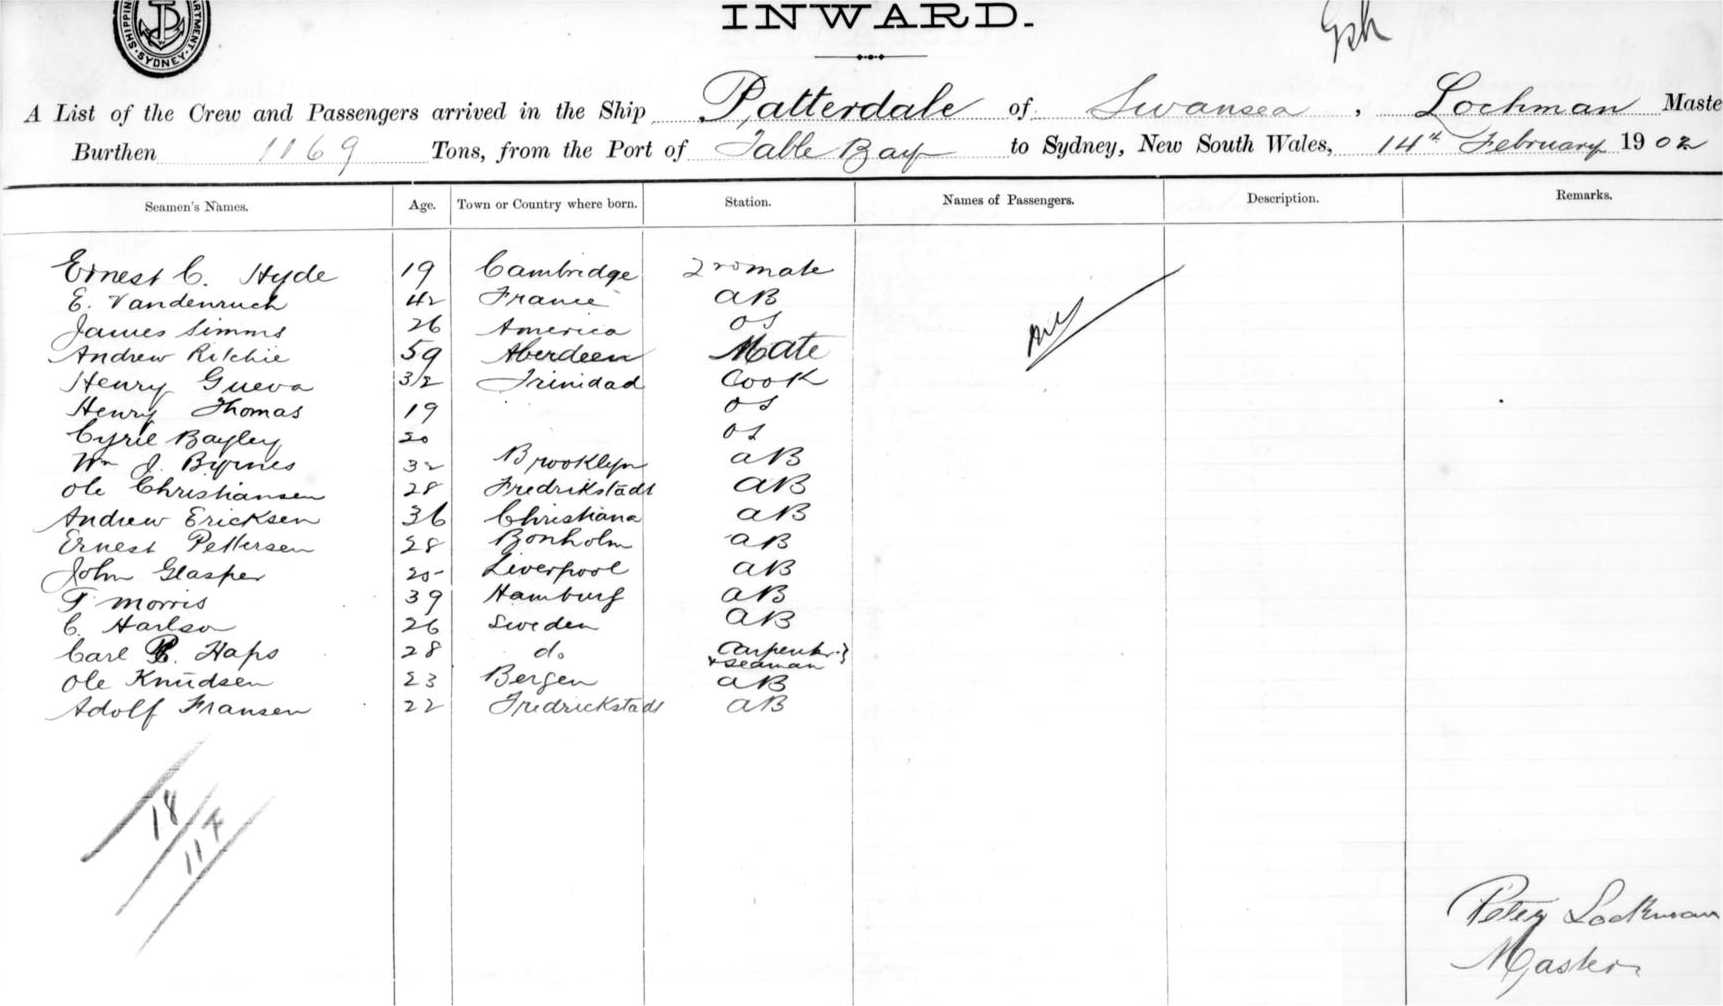 SHIPPING DEPARTMENT SYDNEY
INWARD.
A List of the Crew and Passengers arrived in the Ship Patterdale of Swansea, Lochman Maste
Burthen 1169 Tons, from the Port of Table Bay to Sydney, New South Wales, 14th February 1902
Seamen's Names. Age. Town or Country where born. Station. Names of Passengers. Description. Remarks.
Ernest C. Hyde 19 Cambridge 2nd mate
E. Vandenruch 42 France AB
James Simms 26 America OS
Andrew Ritchie 59 Aberdeen Mate
Henry Gueva 32 Trinidad Cook
Henry Thomas 19 OS
Cyril Bayley 20 OS
Wm J. Byrnes 32 Brooklyn AB
Ole Christiansen 28 Fredrikstadt AB
Andrew Ericksen 36 Christiana AB
Ernest Pettersen 28 Bonholm AB
John Glasper 20 Liverpool AB
T Morris 39 Hamburg AB
C. Harlson 26 Sweden AB
Carl Haps 28 do Carpenter
+ seaman
Ole Knudsen 23 Bergen AB
Adolf Fransen 22 Fredrickstadt AB
18
117
Peter Lochman
Master